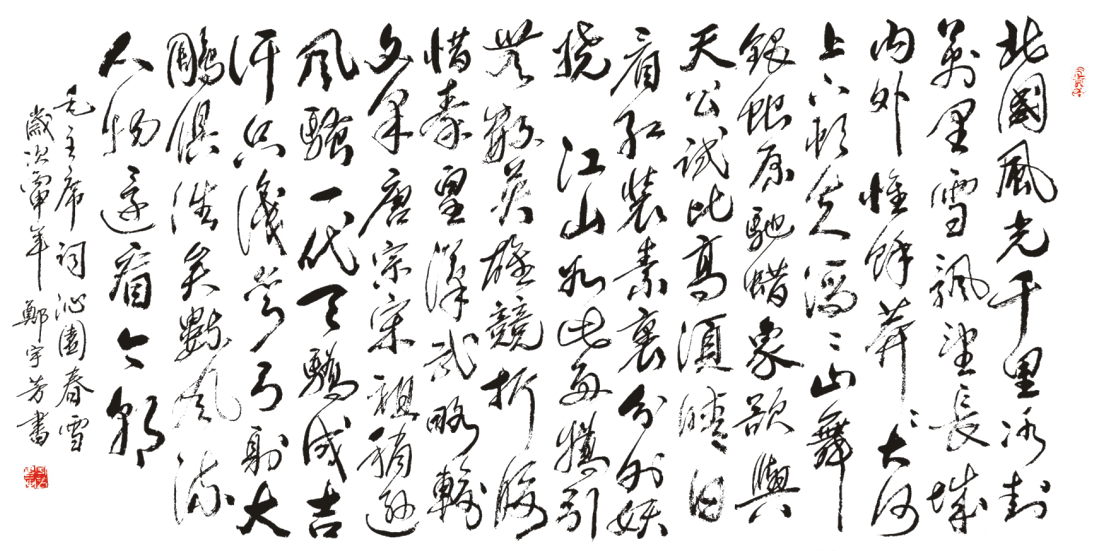 北國風光千里冰封
萬里雪飄望長城
内外惟餘莽〻大河
上下頓失滔〻山舞
銀蛇原馳蜡象欲與
天公試比高須晴日
看紅裝素裹分外妖
嬈 江山如此多嬌引
無數英雄競折腰
惜秦皇漢武略輸
文采唐宗宋祖稍遜
風騷一代天驕成吉
汗只識彎弓射大
鵰俱往矣數風流
人物還看今朝
毛主席詞沁園春雪
歲次年 鄭宇芳書